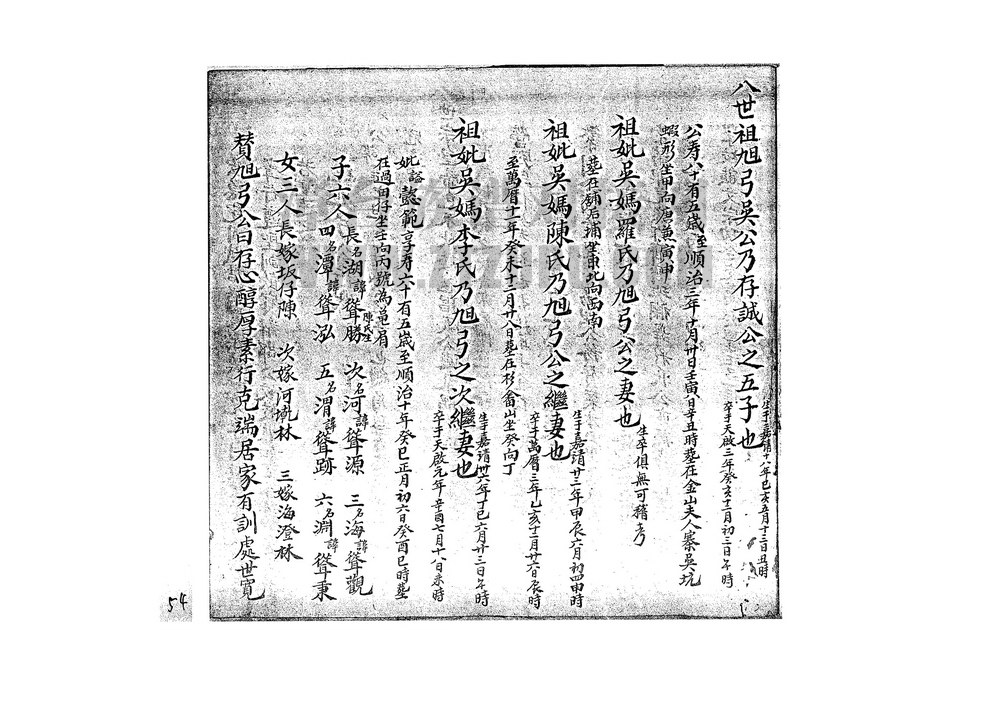 八世祖旭弓吳公乃存誠公之五子也
生于嘉靖十八年己亥五月十三日丑時
卒于天啟三年癸亥十二月初三日午時
公寿八十有五歲至順治三年丁月卅日壬寅日辛丑時塟在金山夫人寨吳坑
蝦形坐甲向庚兼寅申
祖妣吳媽羅氏乃旭弓公之妻也
生卒俱無可稽考
塟在鋪后埔坐東北向西南
祖妣吳媽陳氏乃旭弓公之繼妻也
生于嘉靖廿三年甲辰六月初四申時
卒于萬曆三年乙亥十二月廿六日辰時
至萬曆十一年癸未十二月廿八日塟在杉畬山坐癸向丁
祖妣吳媽李氏乃旭弓之次繼妻也
生于嘉靖卅六年丁巳六月廿三日午時
卒于天啟元年辛酉七月十八日未時
妣諡懿範享寿六十有五歲至順治十年癸巳正月初六日癸酉巳時塟
在過田仔坐壬向丙號為黽肩
子六人長名湖諱聳勝陳氏生 次名河諱聳源 三名海諱聳觀
四名潭諱聳泓 五名渭諱聳跡 六名淵諱聳秉
女三人長嫁坂仔陳 次嫁河坑林 三嫁海澄林
賛旭弓公曰存心醇厚素行克端居家有訓處世寬
54